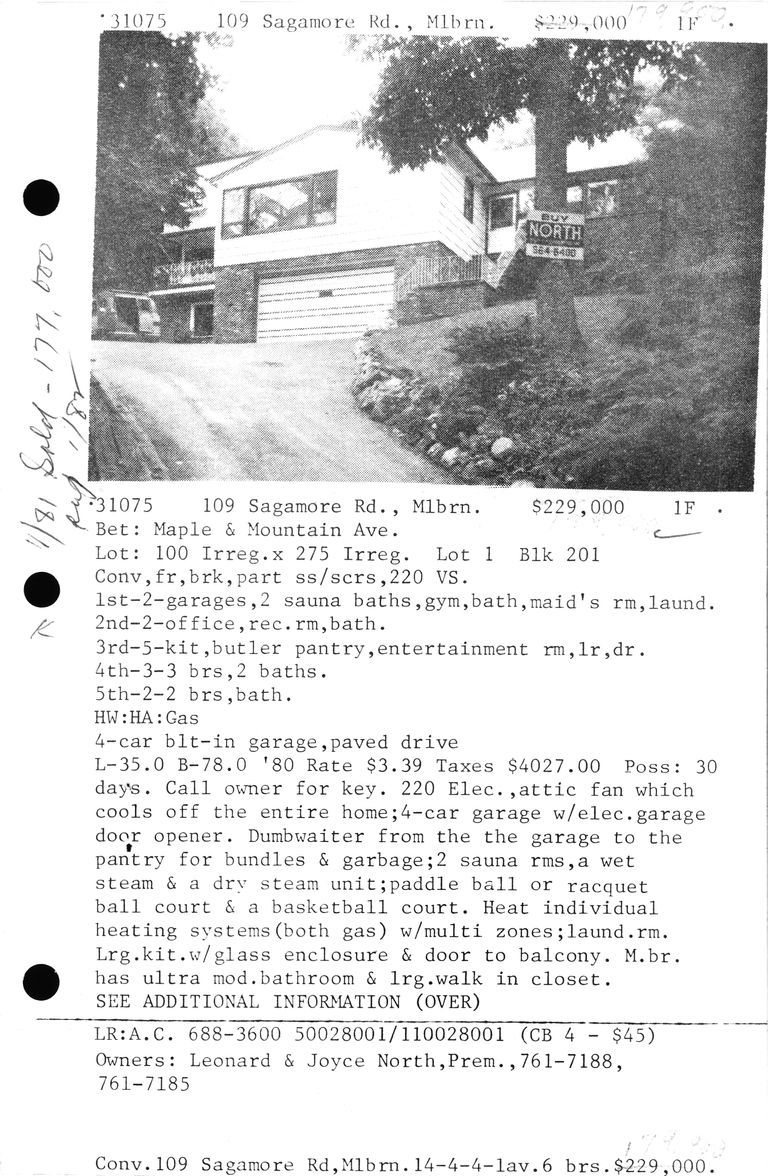 31075 109 Sagamore Rd., Mlbrn. $229,000 179,900. 1F .
BUY
NORTH
564-8400
4/81 Sold - 177,000
Aug 1/82
31075 109 Sagamore Rd., Mlbrn. $229,000 1F .
Bet: Maple & Mountain Ave.
Lot: 100 Irreg.x 275 Irreg. Lot 1 Blk 201
Conv,fr,brk,part ss/scrs,220 VS.
1st-2-garages,2 sauna baths,gym,bath,maid's rm,laund.
2nd-2-office,rec.rm,bath.
3rd-5-kit,butler pantry,entertainment rm,lr,dr.
4th-3-3 brs,2 baths.
5th-2-2 brs,bath.
HW:HA:Gas
4-car blt-in garage,paved drive
L-35.0 B-78.0 '80 Rate $3.39 Taxes $4027.00 Poss: 30
days. Call owner for key. 220 Elec.,attic fan which
cools off the entire home;4-car garage w/elec.garage
door opener. Dumbwaiter from the the garage to the
pantry for bundles & garbage;2 sauna rms,a wet
steam & a dry steam unit;paddle ball or racquet
ball court & a basketball court. Heat individual
heating systems(both gas) w/multi zones;laund.rm.
Lrg.kit.w/glass enclosure & door to balcony. M.br.
has ultra mod.bathroom & lrg.walk in closet.
SEE ADDITIONAL INFORMATION (OVER)
LR:A.C. 688-3600 50028001/110028001 (CB 4 - $45)
Owners: Leonard & Joyce North,Prem.,761-7188,
761-7185
Conv.109 Sagamore Rd,Mlbrn.14-4-4-lav.6 brs.$229,000.